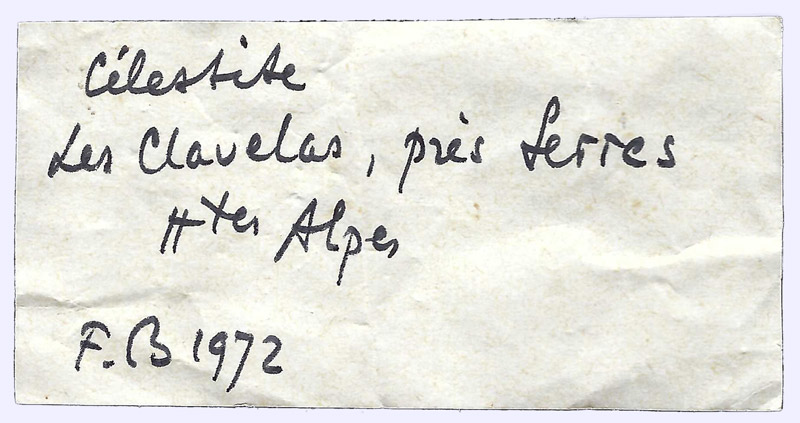 Célestite
Les Clavelas, près Serres
Htes Alpes
F.B 1972